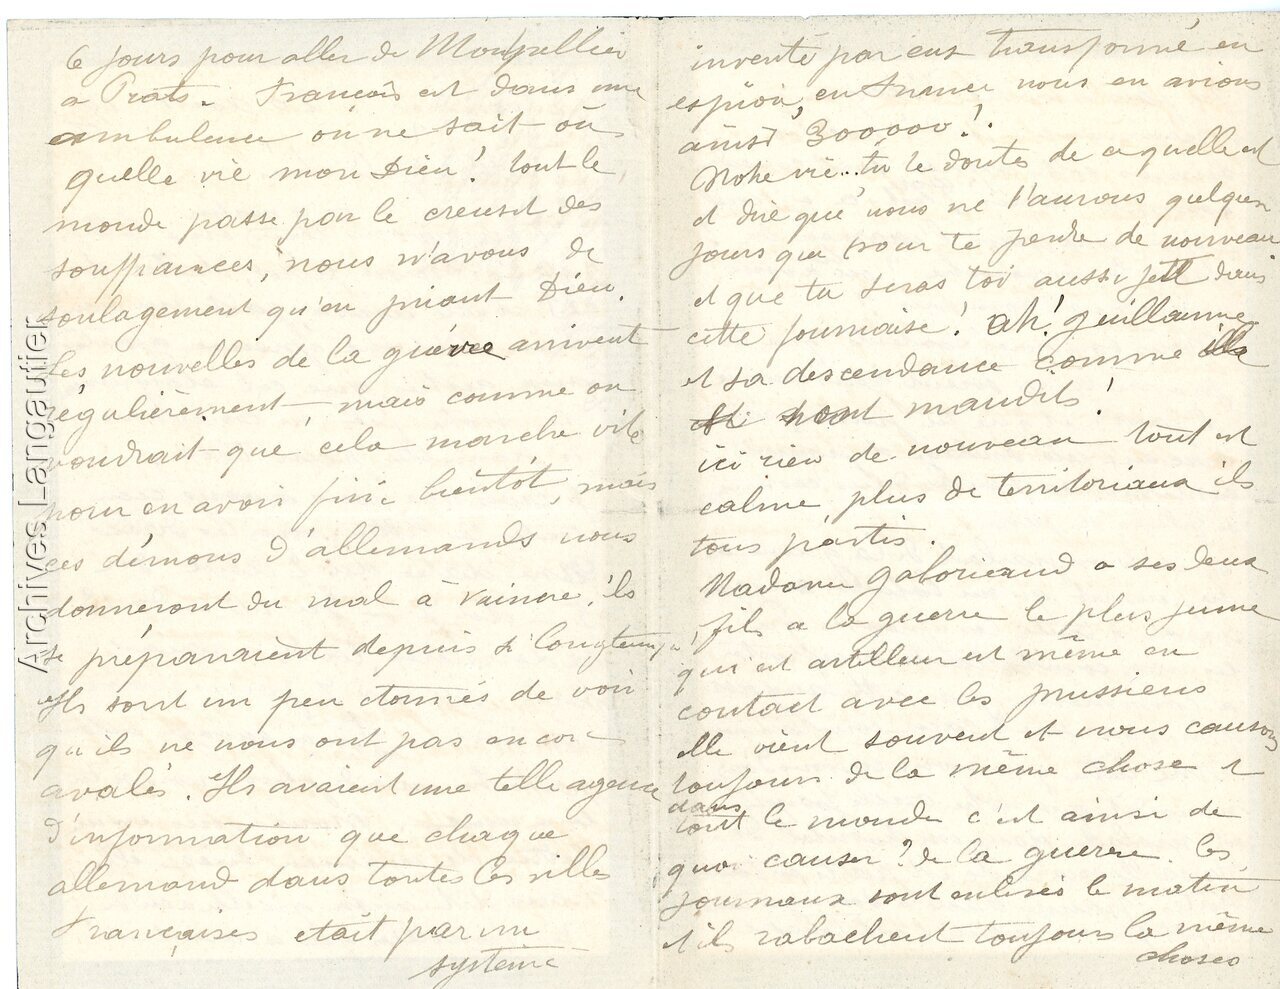 6 jours pour aller de Montpellier
a Prats. François est dans une
ambulance on ne sait où
quelle vie mon Dieu! tout le
monde passe par le creuset des
souffrances, nous n'avons de
soulagement qu'en priant Dieu.
Les nouvelles de la guerre arrivent
régulièrement, mais comme on
voudrait que cela marche vite
pour en avoir fini bientôt, mais
ces démons d'allemands nous
donneront du mal à vaincre, ils
se préparaient depuis si longtemps,
Ils sont un peu etonnés de voir
qu'ils ne nous ont pas encore
avalés. Ils avaient une telle agence
d'information que chaque
allemand dans toutes les villes
Françaises etait par un
système
inventé par eux transformé en
espion, en France nous en avions
ainsi 300000!.
Notre vie... tu te doutes de ce quelle est
et dire que nous ne t'aurons quelques
jours que pour te perdre de nouveau
et que tu seras toi aussi jeté dans
cette fournaise! ah! guillaume
et sa descendance comme ils
sont maudits!
ici rien de nouveau tout est
calme, plus de territoriaux ils
tous partis.
Madame Gaborieaud a ses deux
fils a la guerre le plus jeune
qui est artilleur est même en
contact avec les prussiens
elle vient souvent et nous causons
toujours de la même chose et
dans
tout le monde c'est ainsi de
quoi causer? de la guerre. les
journaux sont enlevés le matin
et ils rabachent toujours la même
choses
Archives Langautier